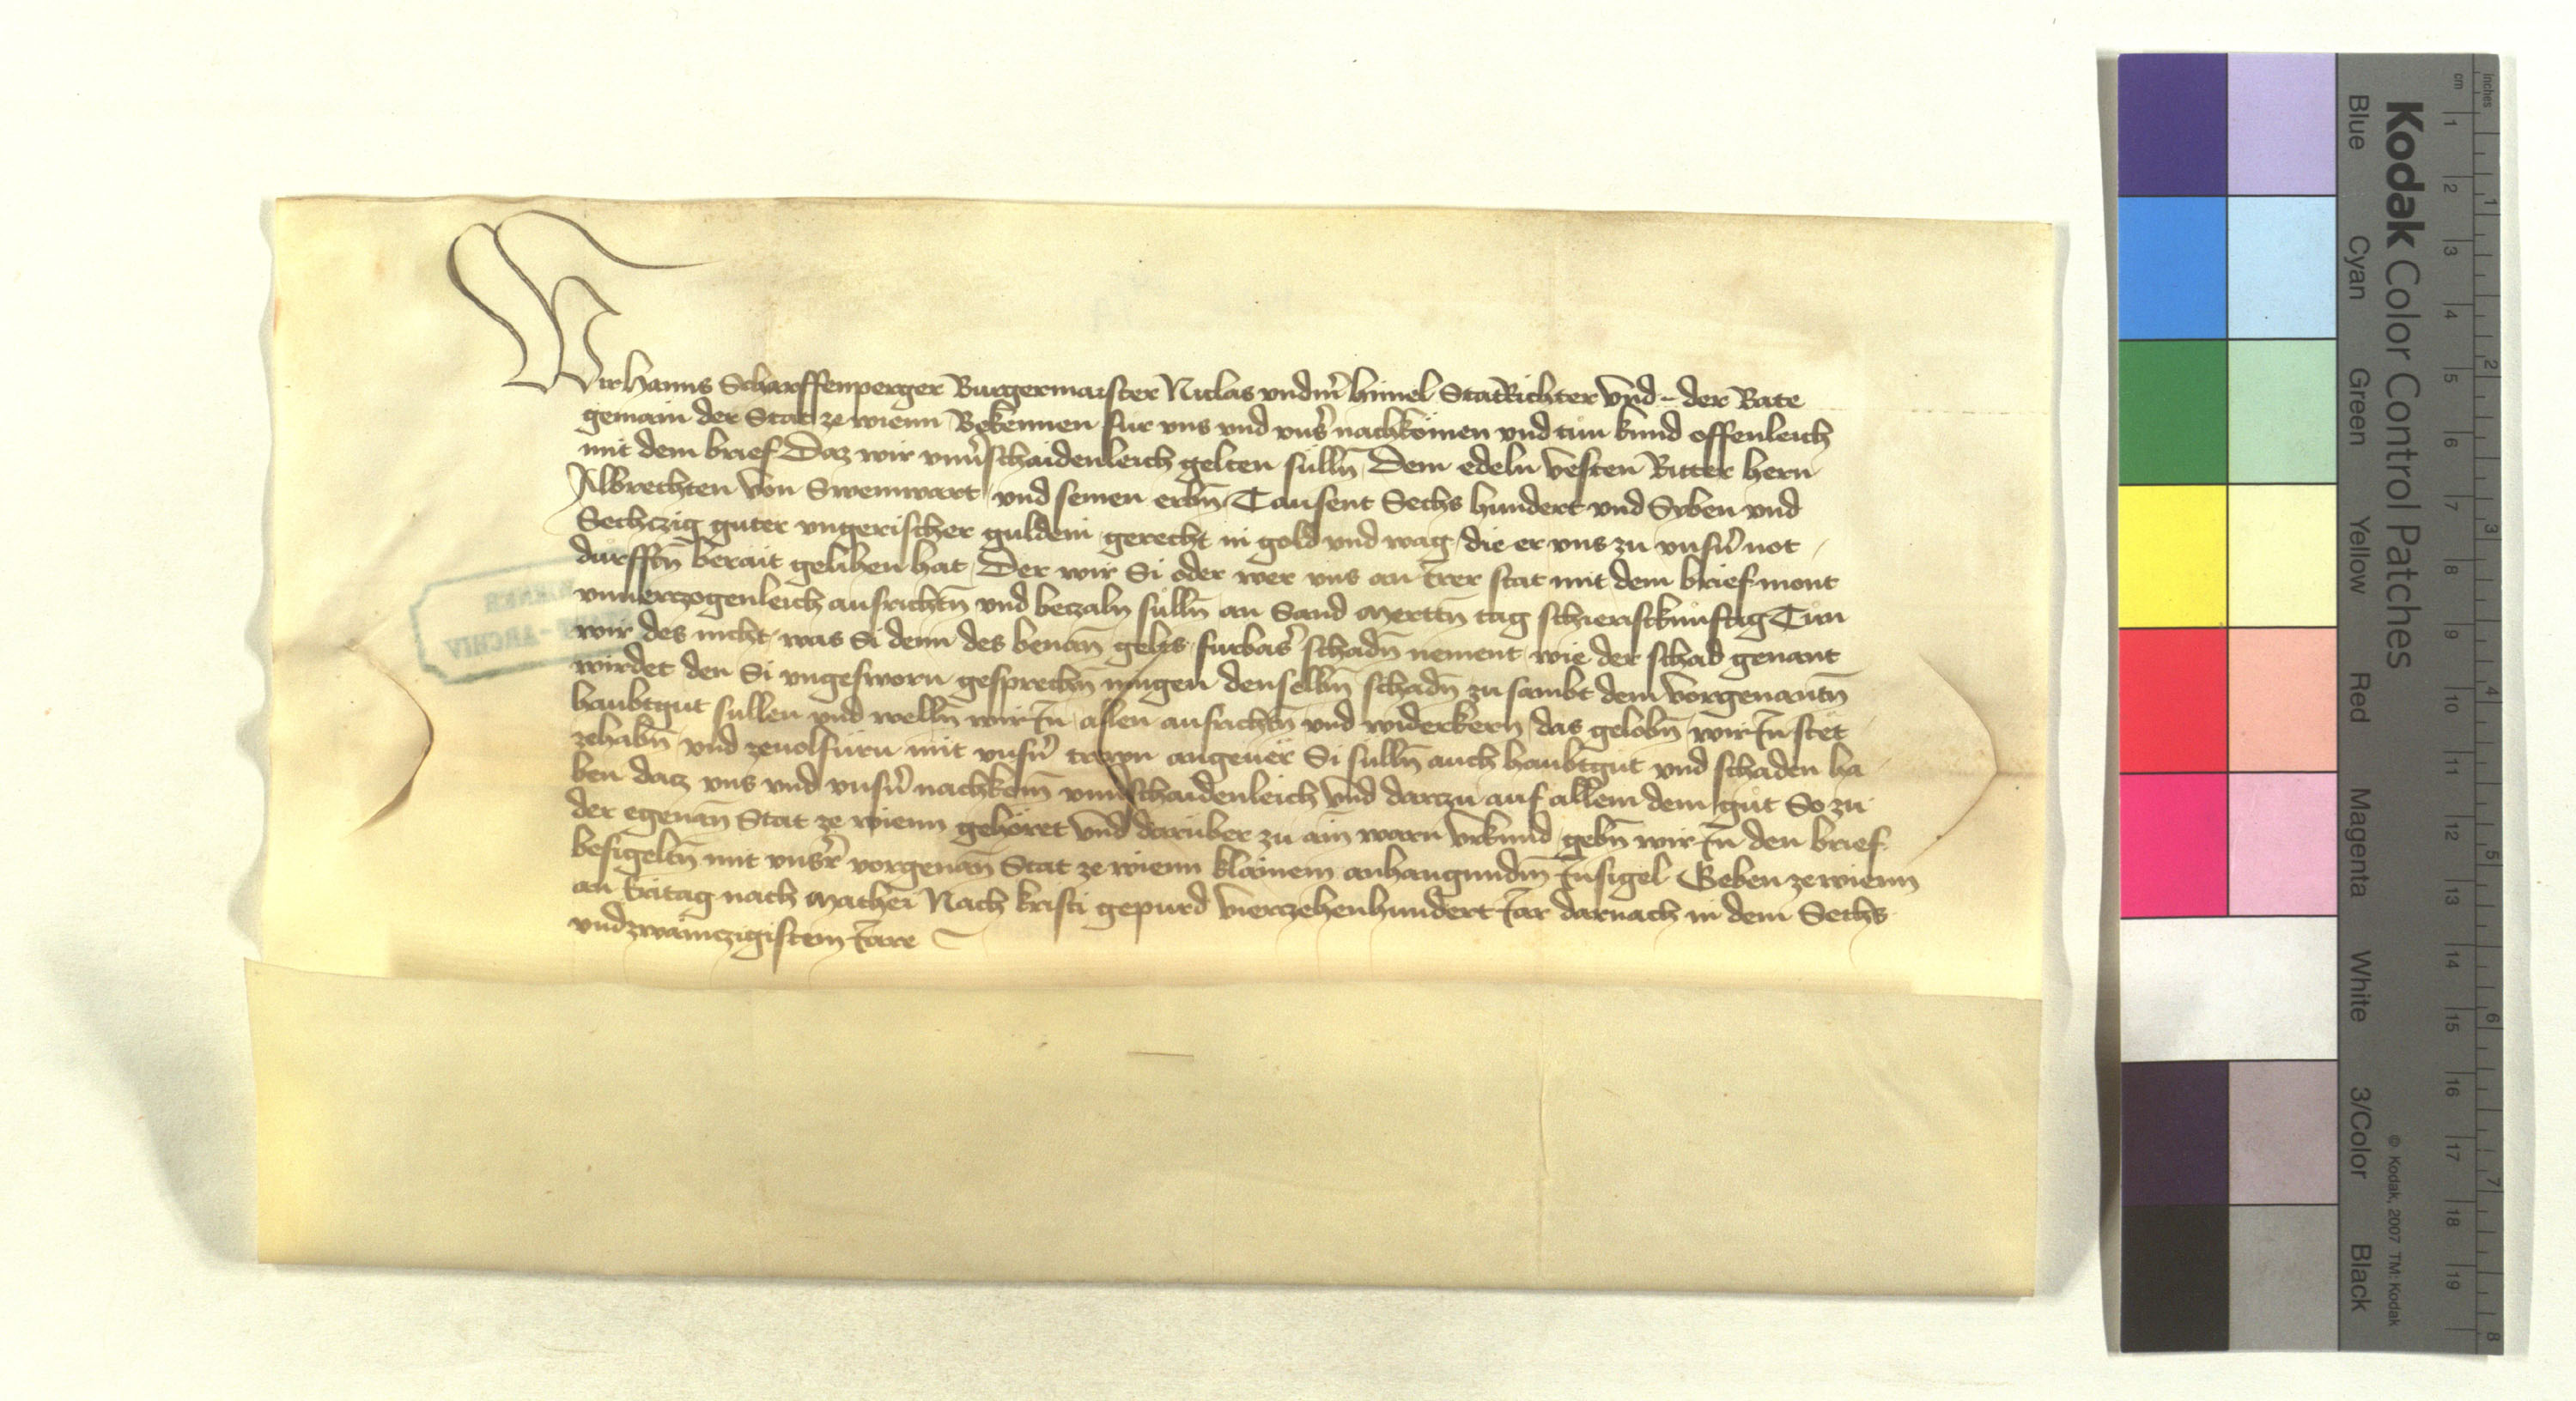 Wir Hanns Scharffenperger Burgermaister Niclas vnderm himel StatRichter vnd der Rate
gemain der Stat ze wienn Bekennen für vns vnd vnser nachkömen vnd tün kund offenleich
mit dem brief Daz wir vnuerschaidenleich gelten sülln Dem edeln vesten Ritter hern
Albrechten von vnd seinen erbn Tausent Sechs hundert vnd Syben vnd
Sechczig guter vngerischer guldein gerecht in gold vnd wag die er vns zu vnsern not
dürfftn berait gelihen hat Der wir Si oder wer vns an irer stat mit dem brief mont
vnuerczogenleich ausrichtn vnd beczaln sülln an Sand Merttn tag schieristkünftig Tün
wir des nicht was Si denn des benan gelts fürbas schadn nement wie der schad genant
wirdet den Si vngesworn gesprechn mügen denselbn schadn zu sambt dem vorgenantn
haubtgut sullen vnd welln wir In allen ausrichtn vnd widerkern das gelobn wir In stet
zehabn vnd zeuolfürn mit vnsern trewn angeuer Si sulln auch haubtgut vnd schaden ha
ben datz vns vnd vnsern nachkom vnuerschaidenleich vnd darczu auf allem dem gut So zu
der egenan Stat ze wienn gehöret vnd darüber zu aim warn vrkund gebn wir In den brief
besigeltn mit vnsrer vorgenan Stat ze wienn klainem anhangundm Insigel Geben ze wienn
an Eritag nach Mathei Nach kristi gepurd vierczehenhundert Iar darnach in dem Sechs
vndzwainczigistem Iare
Kodak Color Control Patches
Blue Cyan Green Yellow Red Magenta White 3/Color Black
© Kodak, 2007 TM: Kodak
inches 1 2 3 4 5 6 7 8
cm 1 2 3 4 5 6 7 8 9 10 11 12 13 14 15 16 17 18 19